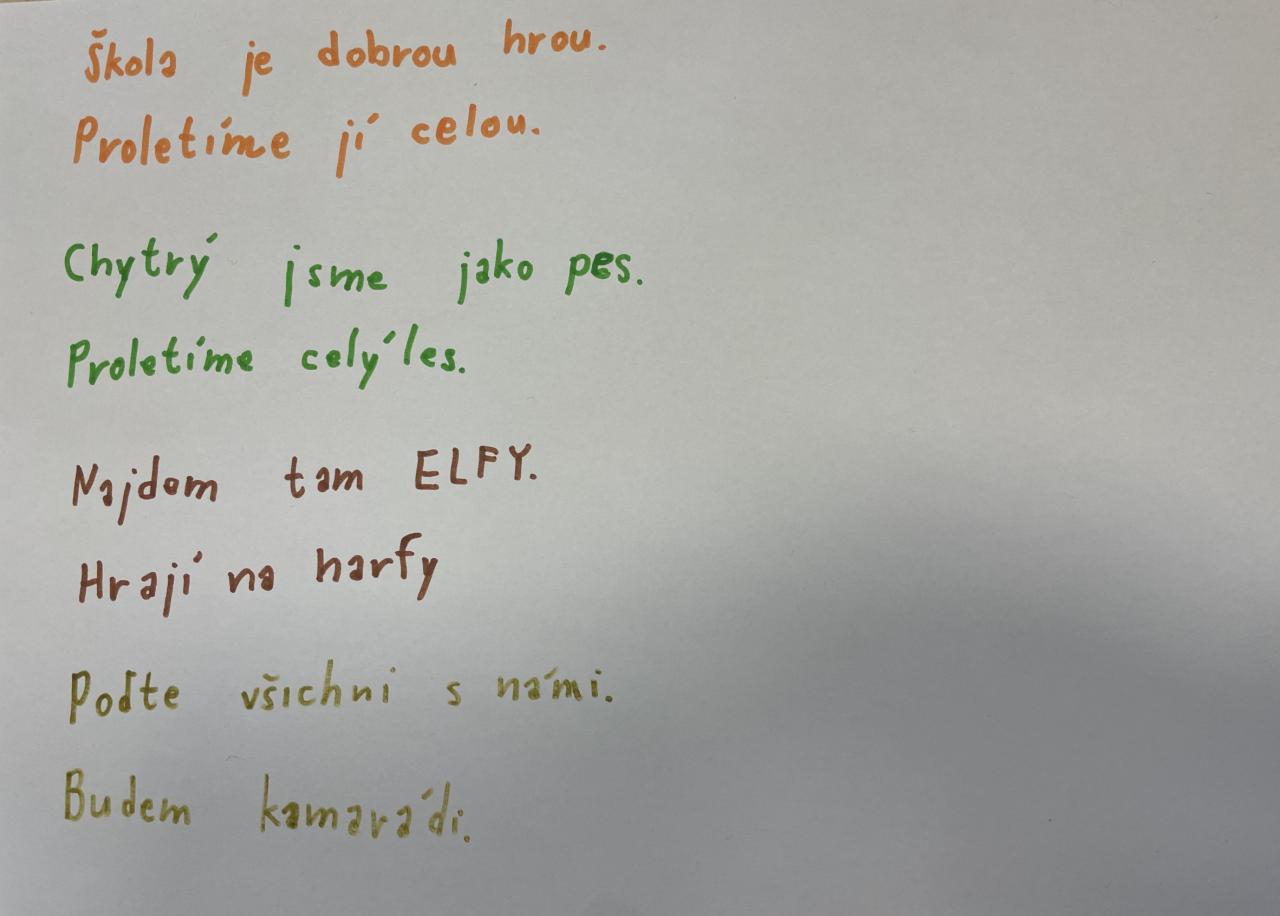 Škola je dobrou hrou.
Proletíme jí celou.
Chytrý jsme jako pes.
Proletíme celý les.
Najdem tam ELFY.
Hrají na harfy
Poďte všichni s námi.
Budem kamarádi.